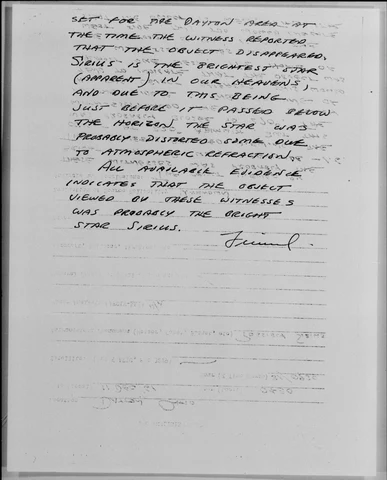 SET FOR THE DAYTON AREA AT
THE TIME THE WITNESS REPORTED
THAT THE OBJECT DISAPPEARED.
SIRIUS IS THE BRIGHTEST STAR
(APPARENT) IN OUR HEAVENS,
AND DUE TO THIS BEING
JUST BEFORE IT PASSED BELOW
THE HORIZON THE STAR WAS
PROBABLY DISTORTED SOME DUE
TO ATMOSPHERIC REFRACTION.
ALL AVAILABLE EVIDENCE
INDICATES THAT THE OBJECT
VIEWED BY THESE WITNESSES
WAS PROBABLY THE BRIGHT
STAR SIRIUS.